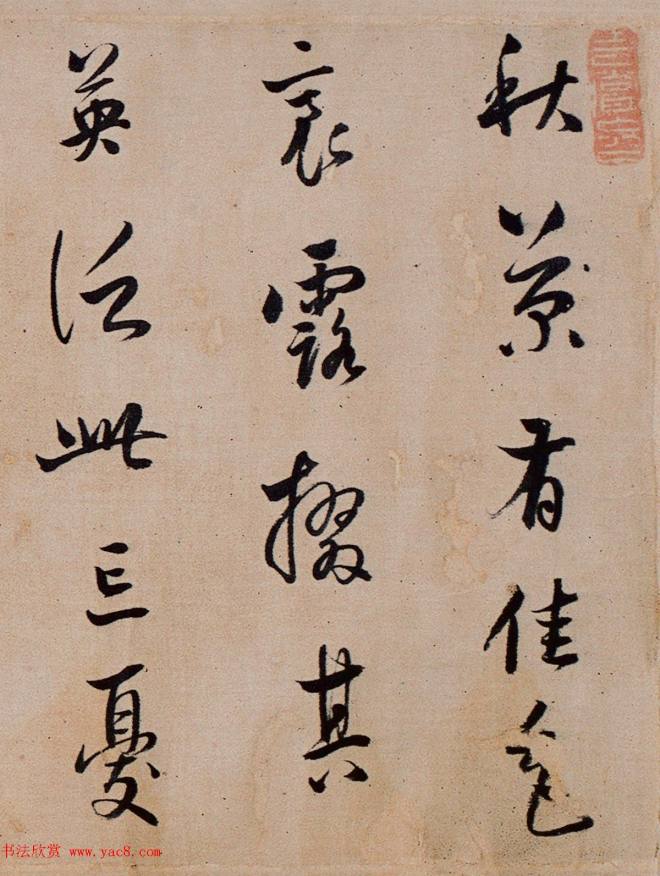 秋菊有佳色
裛露掇其
英泛此忘憂
书法欣赏 www.yac8.com